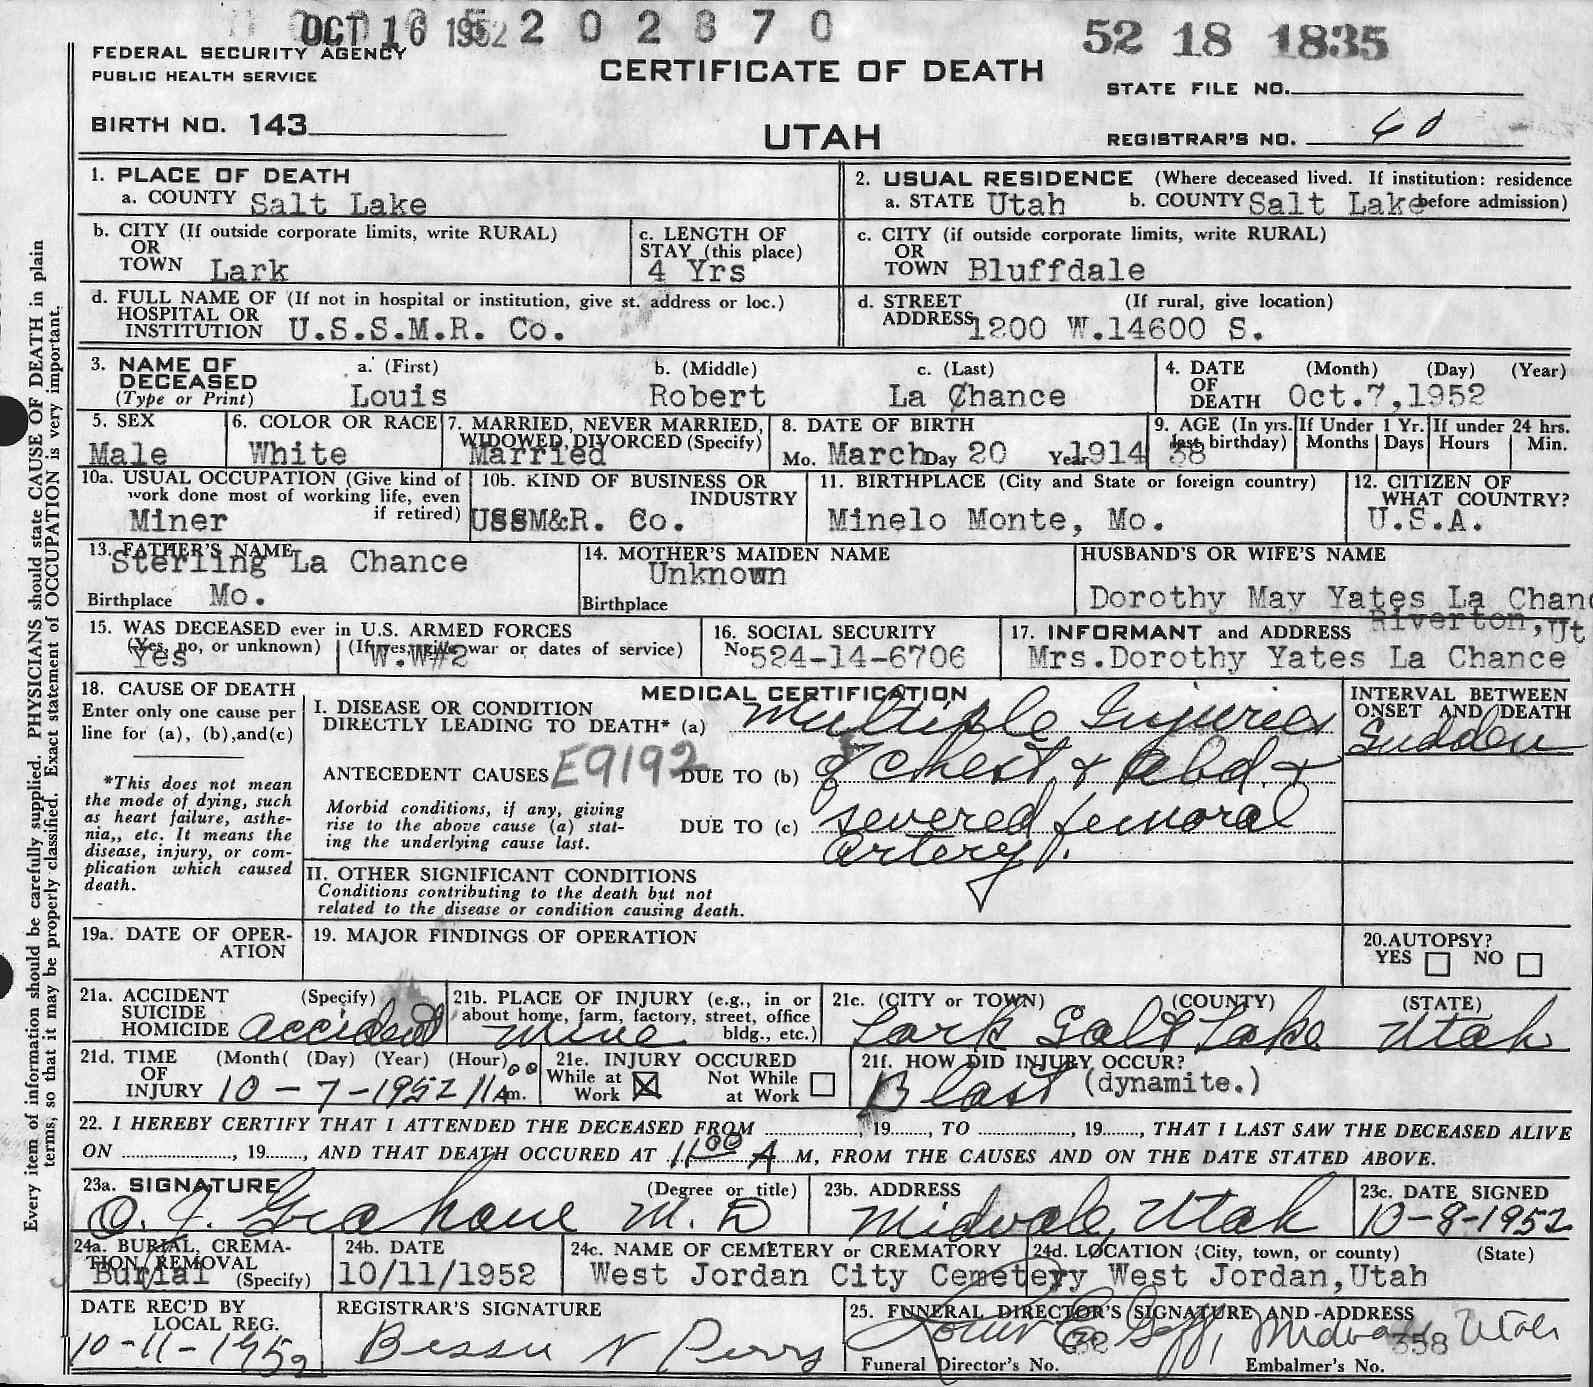 OCT 16 1952 5 2 0 2 8 7 0
52 18 1835
FEDERAL SECURITY AGENCY
PUBLIC HEALTH SERVICE
CERTIFICATE OF DEATH
STATE FILE NO.
BIRTH NO. 143
UTAH
REGISTRAR'S NO. 60
1. PLACE OF DEATH
a. COUNTY Salt Lake
2. USUAL RESIDENCE (Where deceased lived. If institution: residence
a. STATE Utah b. COUNTY Salt Lake before admission)
b. CITY (If outside corporate limits, write RURAL)
OR
TOWN Lark
c. LENGTH OF
STAY (this place)
4 Yrs
c. CITY (if outside corporate limits, write RURAL)
OR
TOWN Bluffdale
d. FULL NAME OF (If not in hospital or institution, give st. address or loc.)
HOSPITAL OR
INSTITUTION U.S.S.M.R. Co.
d. STREET (If rural, give location)
ADDRESS 1200 W.14600 S.
3. NAME OF
DECEASED
(Type or Print)
a. (First)
Louis
b. (Middle)
Robert
c. (Last)
La Chance
4. DATE (Month) (Day) (Year)
OF
DEATH Oct.7,1952
5. SEX
Male
6. COLOR OR RACE
White
7. MARRIED, NEVER MARRIED,
WIDOWED, DIVORCED (Specify)
Married
8. DATE OF BIRTH
Mo. March Day 20 Year 1914
9. AGE (In yrs.
last birthday)
38
If Under 1 Yr.
Months Days
If under 24 hrs.
Hours Min.
10a. USUAL OCCUPATION (Give kind of
work done most of working life, even
if retired)
Miner
10b. KIND OF BUSINESS OR
INDUSTRY
USSM&R. Co.
11. BIRTHPLACE (City and State or foreign country)
Minelo Monte, Mo.
12. CITIZEN OF
WHAT COUNTRY?
U.S.A.
13. FATHER'S NAME
Sterling La Chance
Birthplace Mo.
14. MOTHER'S MAIDEN NAME
Unknown
Birthplace
HUSBAND'S OR WIFE'S NAME
Dorothy May Yates La Chanc
15. WAS DECEASED ever in U.S. ARMED FORCES
(Yes, no, or unknown) (If yes, give war or dates of service)
Yes W.W#2
16. SOCIAL SECURITY
No 524-14-6706
17. INFORMANT and ADDRESS Riverton, Ut
Mrs.Dorothy Yates La Chance
18. CAUSE OF DEATH
Enter only one cause per
line for (a), (b),and(c)
*This does not mean
the mode of dying, such
as heart failure, asthe-
nia,, etc. It means the
disease, injury, or com-
plication which caused
death.
MEDICAL CERTIFICATION
I. DISEASE OR CONDITION
DIRECTLY LEADING TO DEATH* (a) Multiple Injuries
ANTECEDENT CAUSES E9192 DUE TO (b) of chest & abd &
Morbid conditions, if any, giving
rise to the above cause (a) stat-
ing the underlying cause last.
DUE TO (c) severed femoral
artery.
INTERVAL BETWEEN
ONSET AND DEATH
Sudden
II. OTHER SIGNIFICANT CONDITIONS
Conditions contributing to the death but not
related to the disease or condition causing death.
19a. DATE OF OPER-
ATION
19. MAJOR FINDINGS OF OPERATION
20.AUTOPSY?
YES NO
21a. ACCIDENT (Specify)
SUICIDE
HOMICIDE accident
21b. PLACE OF INJURY (e.g., in or
about home, farm, factory, street, office
bldg., etc.)
mine
21c. (CITY or TOWN) (COUNTY) (STATE)
Lark Salt Lake Utah
21d. TIME (Month( (Day) (Year) (Hour)
OF
INJURY 10-7-1952 11 00 Am.
21e. INJURY OCCURED
While at Work ☒ Not While at Work ☐
21f. HOW DID INJURY OCCUR?
Blast (dynamite.)
22. I HEREBY CERTIFY THAT I ATTENDED THE DECEASED FROM ............, 19......, TO ............, 19......, THAT I LAST SAW THE DECEASED ALIVE
ON ............, 19......, AND THAT DEATH OCCURED AT 11 00 A M, FROM THE CAUSES AND ON THE DATE STATED ABOVE.
23a. SIGNATURE (Degree or title)
M. D
23b. ADDRESS
Midvale, Utah
23c. DATE SIGNED
10-8-1952
24a. BURIAL, CREMA-
TION, REMOVAL
(Specify)
Burial
24b. DATE
10/11/1952
24c. NAME OF CEMETERY or CREMATORY
West Jordan City Cemetery
24d. LOCATION (City, town, or county) (State)
West Jordan, Utah
DATE REC'D BY
LOCAL REG.
10-11-1952
REGISTRAR'S SIGNATURE
Bessie N Perry
25. FUNERAL DIRECTOR'S SIGNATURE AND ADDRESS
Goff, Midvale Utah
Funeral Director's No. Embalmer's No. 358
Every item of information should be carefully supplied. PHYSICIANS should state CAUSE OF DEATH in plain
terms, so that it may be properly classified. Exact statement of OCCUPATION is very important.